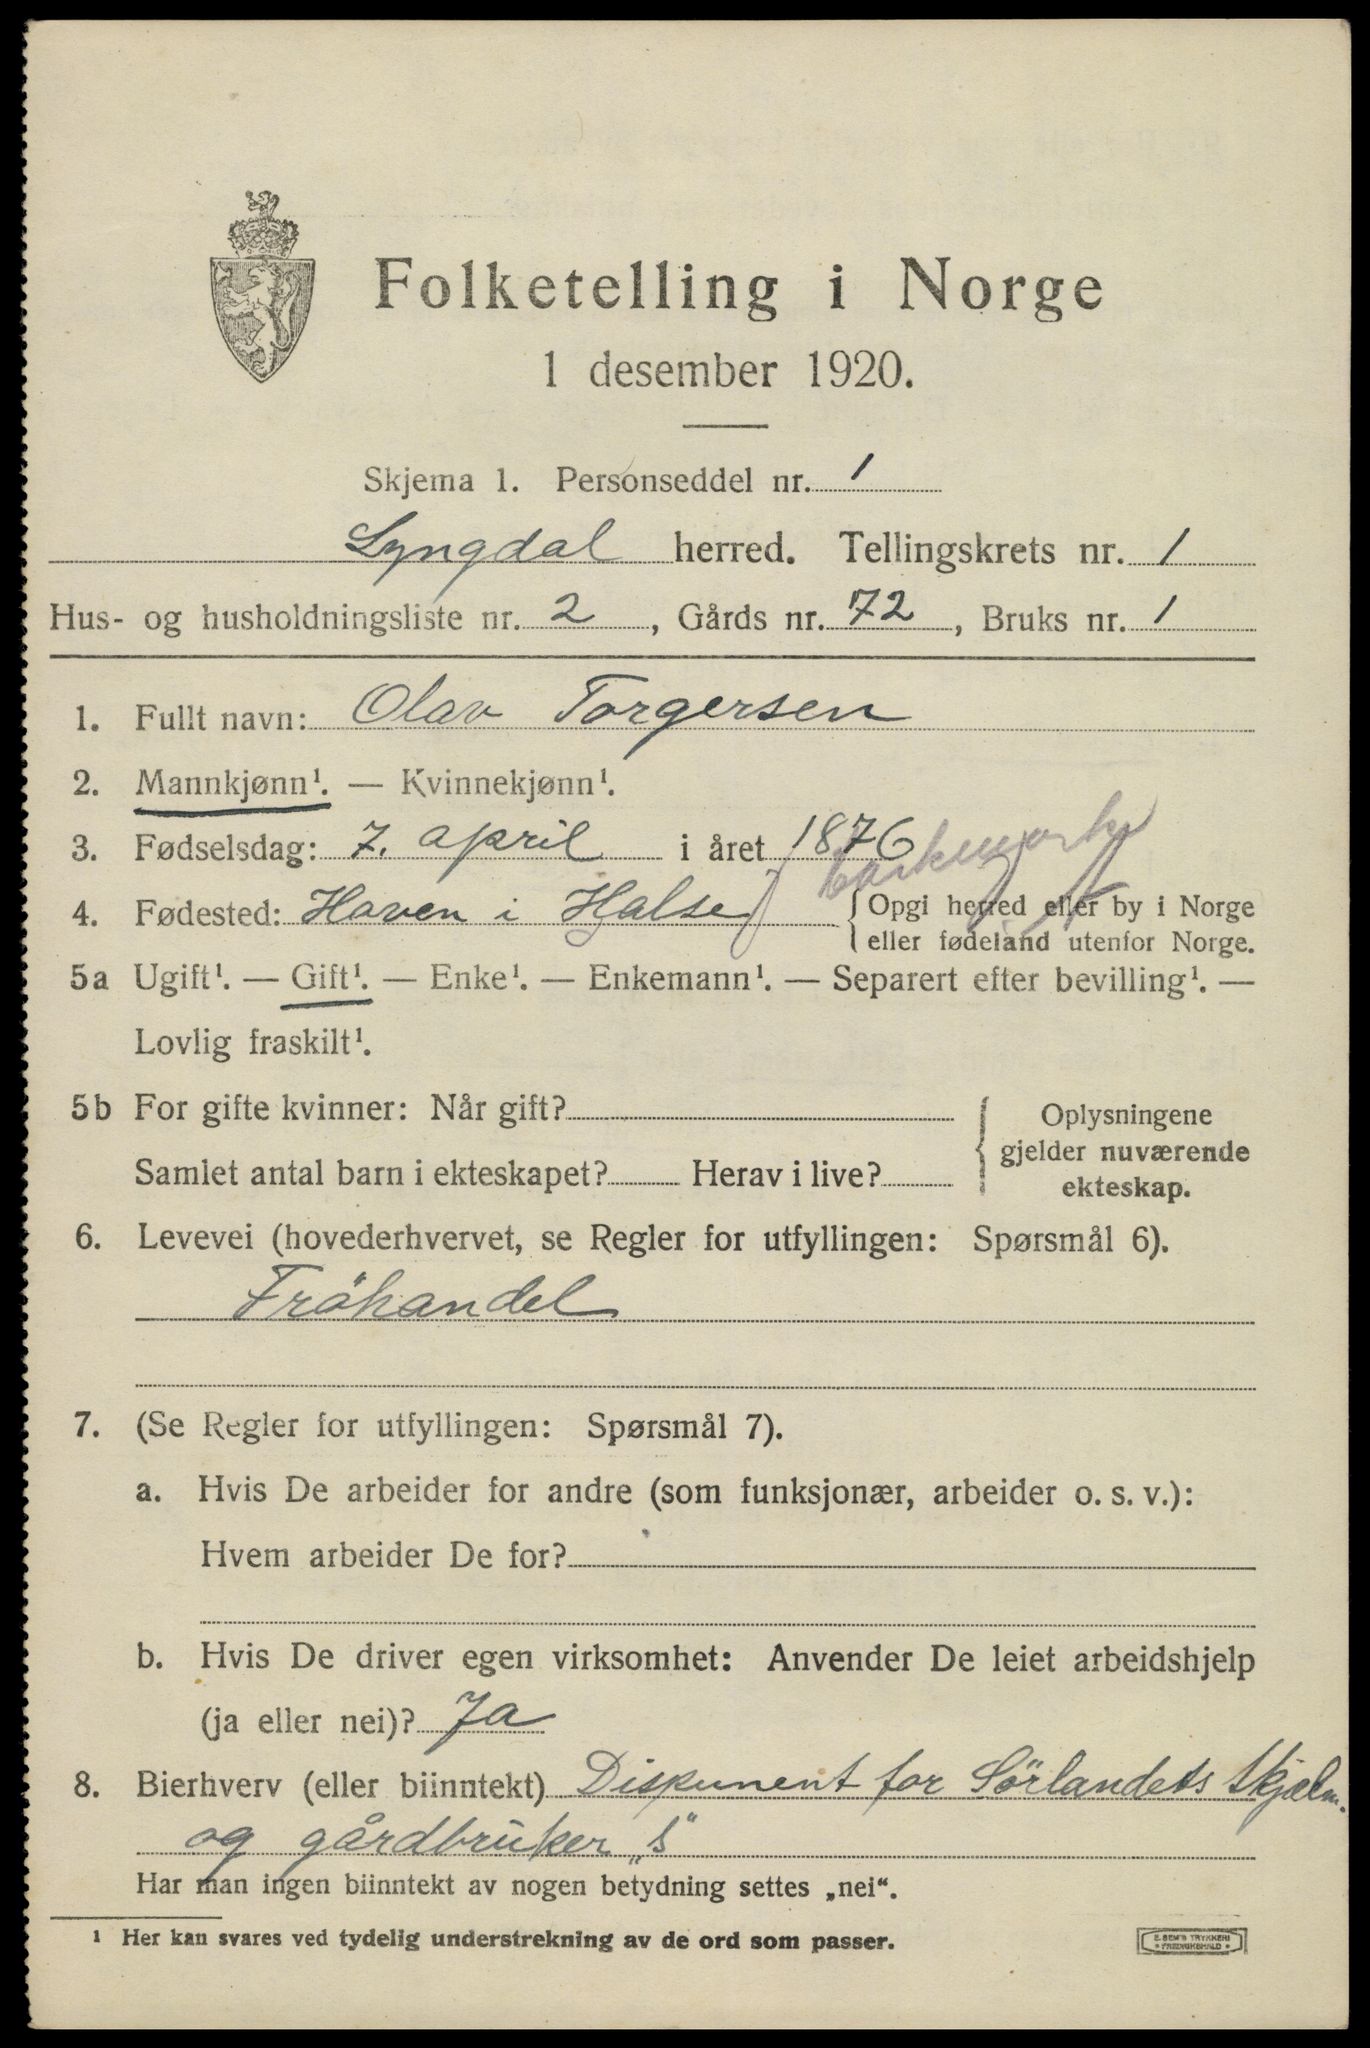 Folketelling i Norge
1 desember 1920.
Skjema 1. Personseddel nr. 1
Lyngdal herred. Tellingskrets nr. 1
Hus- og husholdningsliste nr. 2, Gårds nr. 72, Bruks nr. 1
1. Fullt navn: Olav Torgersen
2. Mannkjønn¹. — Kvinnekjønn¹.
3. Fødselsdag: 7. april i året 1876
4. Fødested: Haven i Halse { Opgi herred eller by i Norge
eller fødeland utenfor Norge.
5a Ugift¹. — Gift¹. — Enke¹. — Enkemann¹. — Separert efter bevilling¹. —
Lovlig fraskilt¹.
5b For gifte kvinner: Når gift?
Samlet antal barn i ekteskapet? Herav i live?
Oplysningene
gjelder nuværende
ekteskap.
6. Levevei (hovederhvervet, se Regler for utfyllingen: Spørsmål 6).
Fröhandel
7. (Se Regler for utfyllingen: Spørsmål 7).
a. Hvis De arbeider for andre (som funksjonær, arbeider o. s. v.):
Hvem arbeider De for?
b. Hvis De driver egen virksomhet: Anvender De leiet arbeidshjelp
(ja eller nei)? Ja
8. Bierhverv (eller biinntekt) Disponent for Sörlandets
og gårdbruker „s"
Har man ingen biinntekt av nogen betydning settes „nei“.
¹ Her kan svares ved tydelig understrekning av de ord som passer.
E. SEM'S TRYKKERI
FREDRIKSHALD